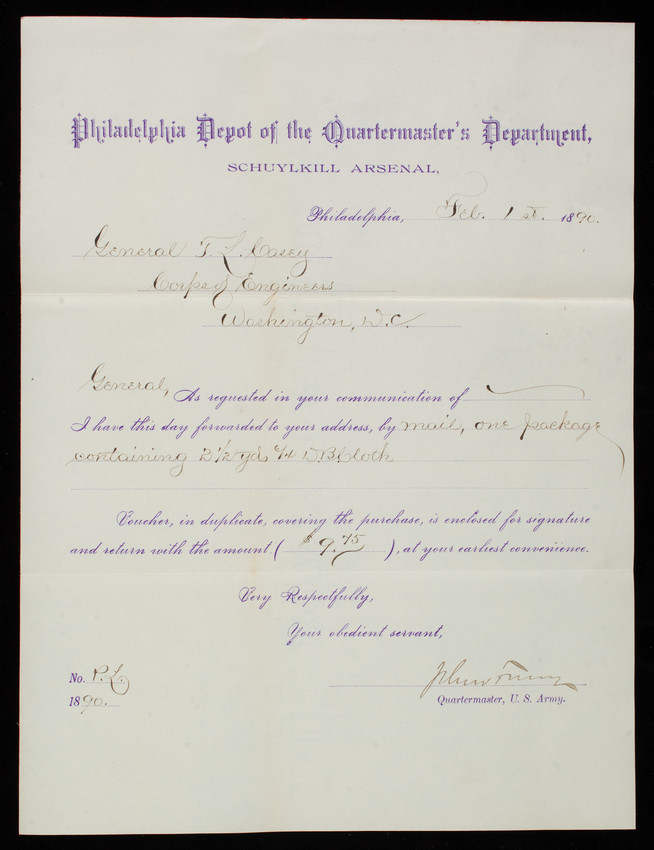 Philadelphia Depot of the Quartermaster's Department,
SCHUYLKILL ARSENAL,
Philadelphia, Feb. 1st. 1890.
General T. L. Casey
Corps of Engineers
Washington, D.C.
General, As requested in your communication of
I have this day forwarded to your address, by mail, one package
containing 2 1/2 yds 6/4 D.B. Cloth
Voucher, in duplicate, covering the purchase, is enclosed for signature
and return with the amount ( $9.75 ), at your earliest convenience.
Very Respectfully,
Your obedient servant,
No. P.L.
1890.
Quartermaster, U. S. Army.